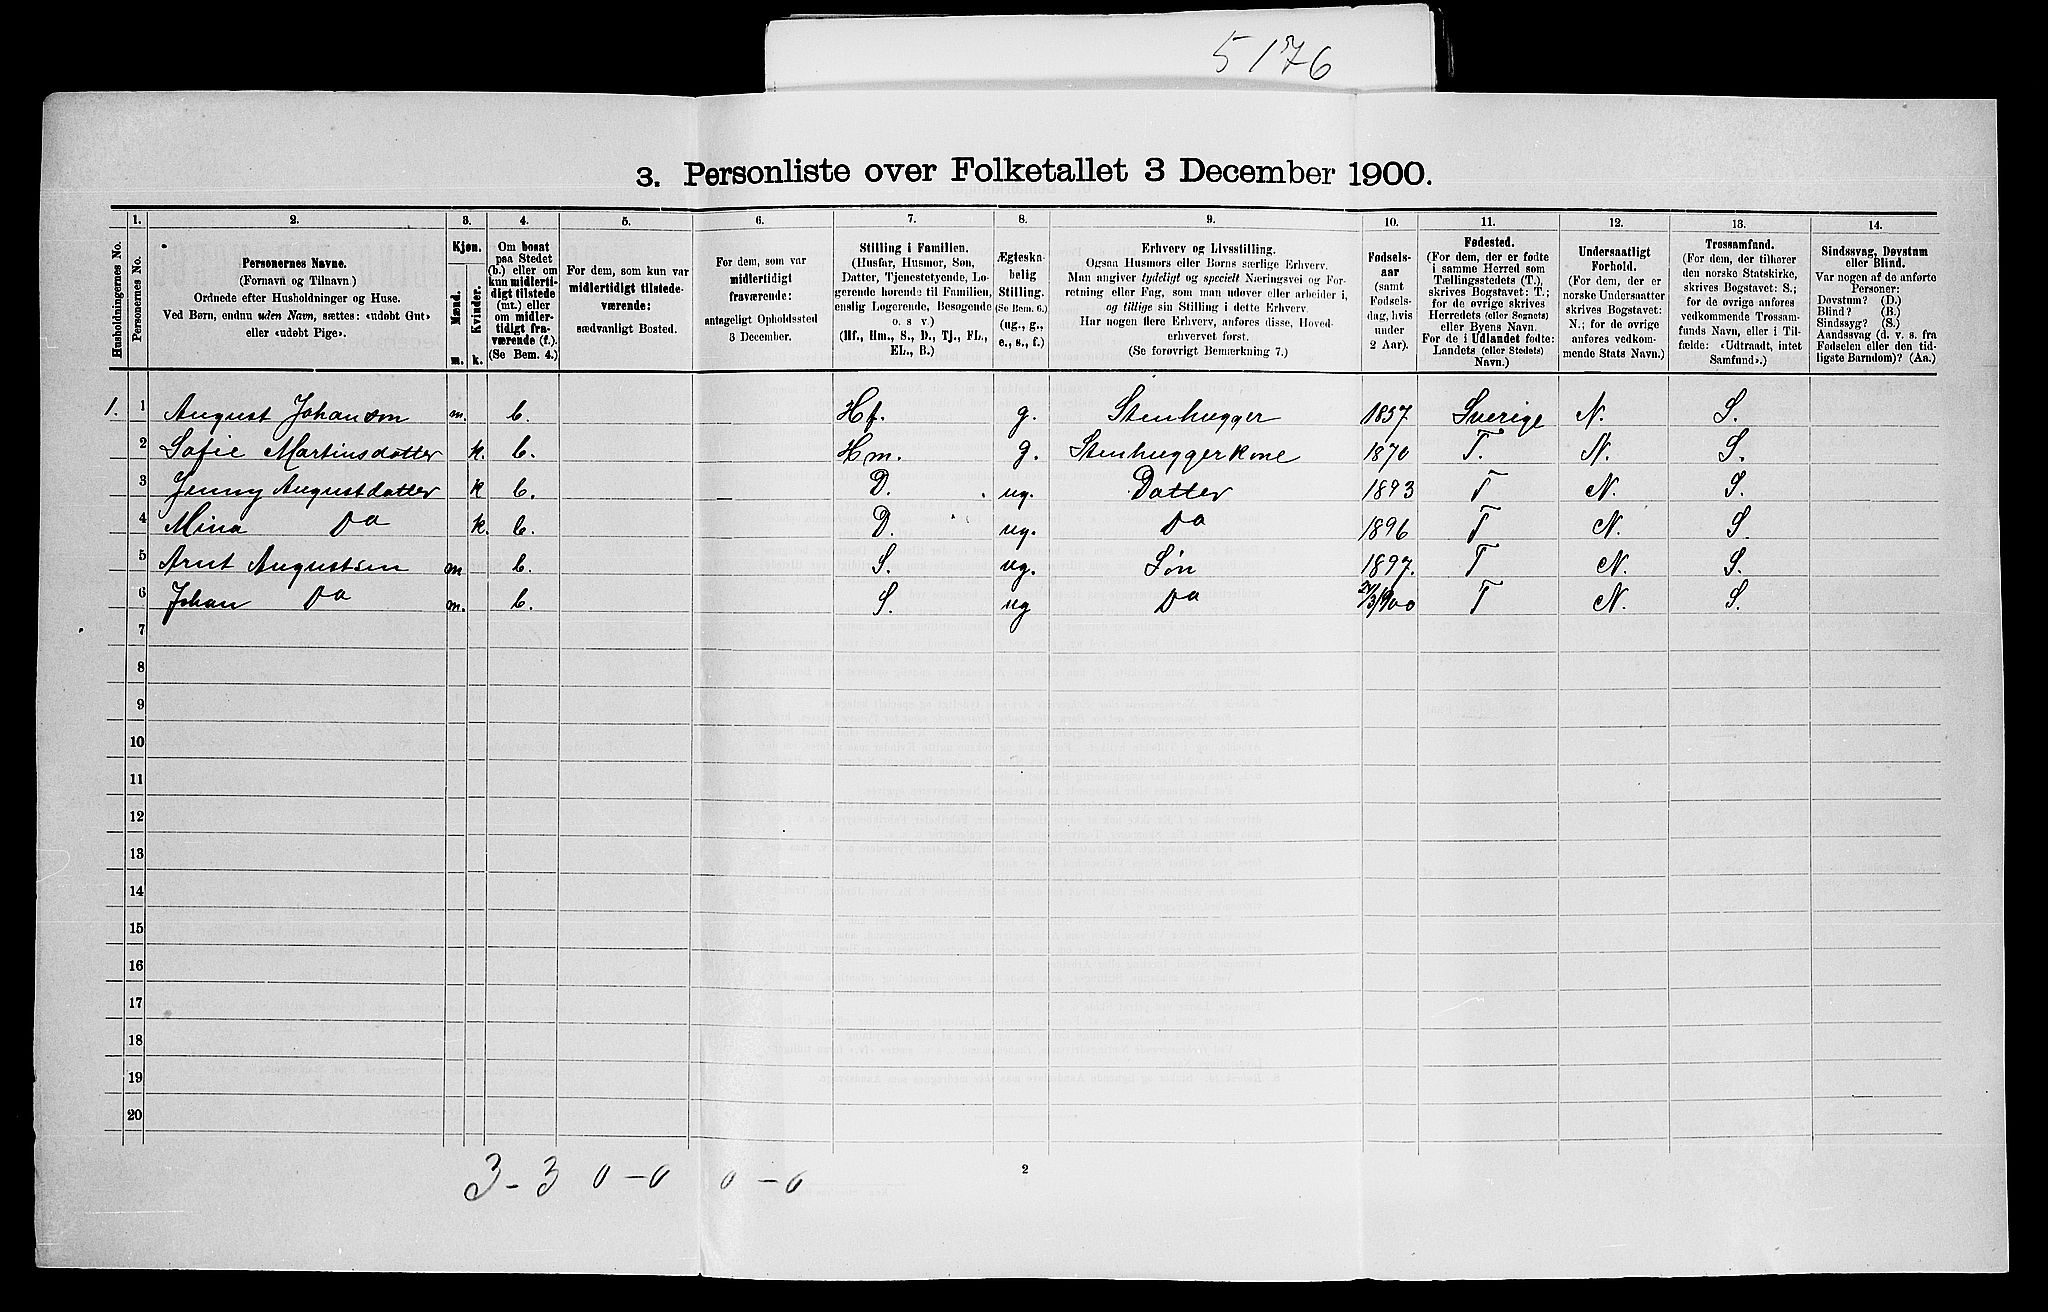 5176
3. Personliste over Folketallet 3 December 1900.
1. 2. 3. 4. 5. 6. 7. 8. 9. 10. 11. 12. 13. 14.
Husholdningernes No.
Personernes No.
Personernes Navne.
(Fornavn og Tilnavn)
Ordnede efter Husholdninger og Huse.
Ved Børn, endnu uden Navn, sættes: «udøbt Gut»
eller «udøbt Pige».
Kjøn.
Mænd.
Kvinder.
m. k.
Om bosat
paa Stedet
(b.) eller om
kun midler-
tidigt tilstede
(mt.) eller
om midler-
tidigt fra-
værende (f.).
(Se Bem. 4.)
For dem, som kun var
midlertidigt tilstede-
værende:
sædvanligt Bosted.
For dem, som var
midlertidigt
fraværende:
antageligt Opholdssted
3 December.
Stilling i Familien.
(Husfar, Husmor, Søn,
Datter, Tjenestetyende, Lo-
gerende hørende til Familien,
enslig Logerende, Besøgende
o. s v)
(Hf., Hm., S., D., Tj., FL.,
EL., B.)
Ægteska-
belig
Stilling.
(Se Bem. 6.)
(ug., g.,
e., s., f.)
Erhverv og Livsstilling.
Ogsaa Husmors eller Børns særlige Erhverv.
Man angiver tydeligt og specielt Næringsvei og For-
retning eller Fag, som man udøver eller arbeider i,
og tillige sin Stilling i dette Erhverv
Har nogen flere Erhverv, anføres disse, Hoved-
erhvervet først.
(Se forøvrigt Bemærkning 7.)
Fødsels-
aar
(samt
Fødsels-
dag, hvis
under
2 Aar).
Fødested.
(For dem, der er fødte
i samme Herred som
Tællingsstedets (T.),
skrives Bogstavet: T.;
for de øvrige skrives
Herredets (eller Sognets)
eller Byens Navn.
For de i Udlandet fødte:
Landets (eller Stedets)
Navn.)
Undersaatligt
Forhold.
(For dem, der er
norske Undersaatter
skrives Bogstavet:
N.; for de øvrige
anføres vedkom-
mende Stats Navn.)
Trossamfund.
(For dem, der tilhører
den norske Statskirke,
skrives Bogstavet: S.;
for de øvrige anføres
vedkommende Trossam-
funds Navn, eller i Til-
fælde: «Udtraadt, intet
Samfund».)
Sindssvag, Døvstum
eller Blind.
Var nogen af de anførte
Personer:
Døvstum? (D.)
Blind? (B.)
Sindssyg? (S.)
Aandssvag (d. v. s. fra
Fødselen eller den tid-
ligste Barndom)? (Aa.)
1. 1 August Johanson m. b. Hf. g. Stenhugger 1857. Sverige N. S.
2 Sofie Martinsdatter k. b. Hm. g. Stenhuggerkone 1870 T. N. S.
3 Jenny Augustdatter k b. D. ug. Datter 1893 T N. S.
4 Mina Do k. b. D. ug. Do 1896 T N. S.
5 Arnt Augustsen m b. S. ug. Søn 1897. T N. S.
6 Johan Do m. b. S. ug Do /3 1900 T N. S.
7
8
9
10
11
12
13
14
15
16
17
18
19
20
3 - 3 0 - 0 0 - 0
2